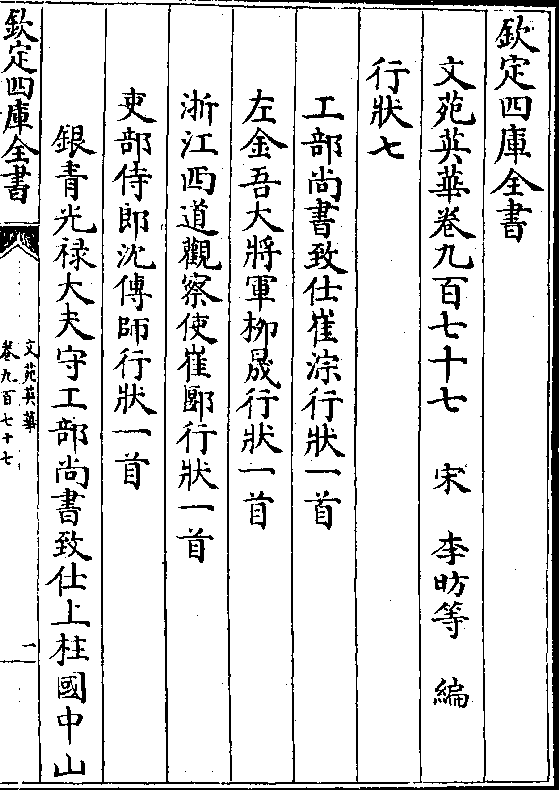 欽定四庫全書
文苑英華卷九百七十七 宋 李昉等 編
行狀七
工部尚書致仕崔淙行狀一首
左金吾大將軍柳晟行狀一首
浙江西道觀察使崔郾行狀一首
吏部侍郎沈傳師行狀一首
銀青光禄大夫守工部尚書致仕上柱國中山
欽定四庫全書
文苑英華
卷九百七十七
一